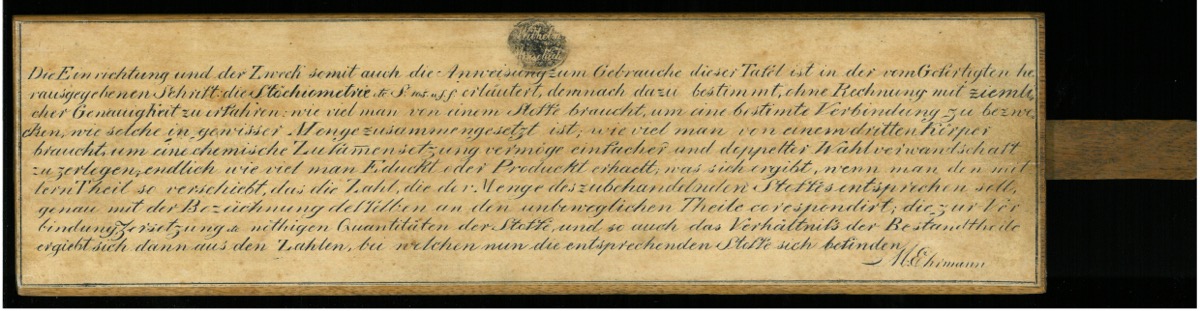 Die Einrichtung und der Zweck somit auch die Anweisung zum Gebrauche dieser Tafel ist in der vom Gefertigten he
rausgegebenen Schrift die Stöchiometrie &c S. 105. u.f.f. erläutert, demnach dazu bestimmt, ohne Rechnung mit ziemli
cher Genauigheit zu erfahren: wie viel man von einem Stoffe braucht, um eine bestimte Verbindung zu bezwe
cken, wie solche in gewisser Menge zusammengesetzt ist; wie viel man von einem dritten Körper
braucht, um eine chemische Zusam̄ensetzung vermöge einfacher und doppelter Wahlverwandschaft
zu zerlegen; endlich wie viel man Educkt oder Produckt erhaelt; was sich ergibt, wenn man den mit
lern Theil so verschiebt, das die Zahl, die der Menge des zubehandelnden Stoffes entsprechen soll,
genau mit der Bezeichnung desselben an den unbeweglichen Theile corespondirt; die zur Ver
bindung, Zersetzung &c nöthigen Quantitäten der Stoffe, und so auch das Verhältniss der Bestandtheile
ergiebt sich dann aus den Zahlen, bei welchen nun die entsprechenden Stoffe sich befinden
M. Ehrmann